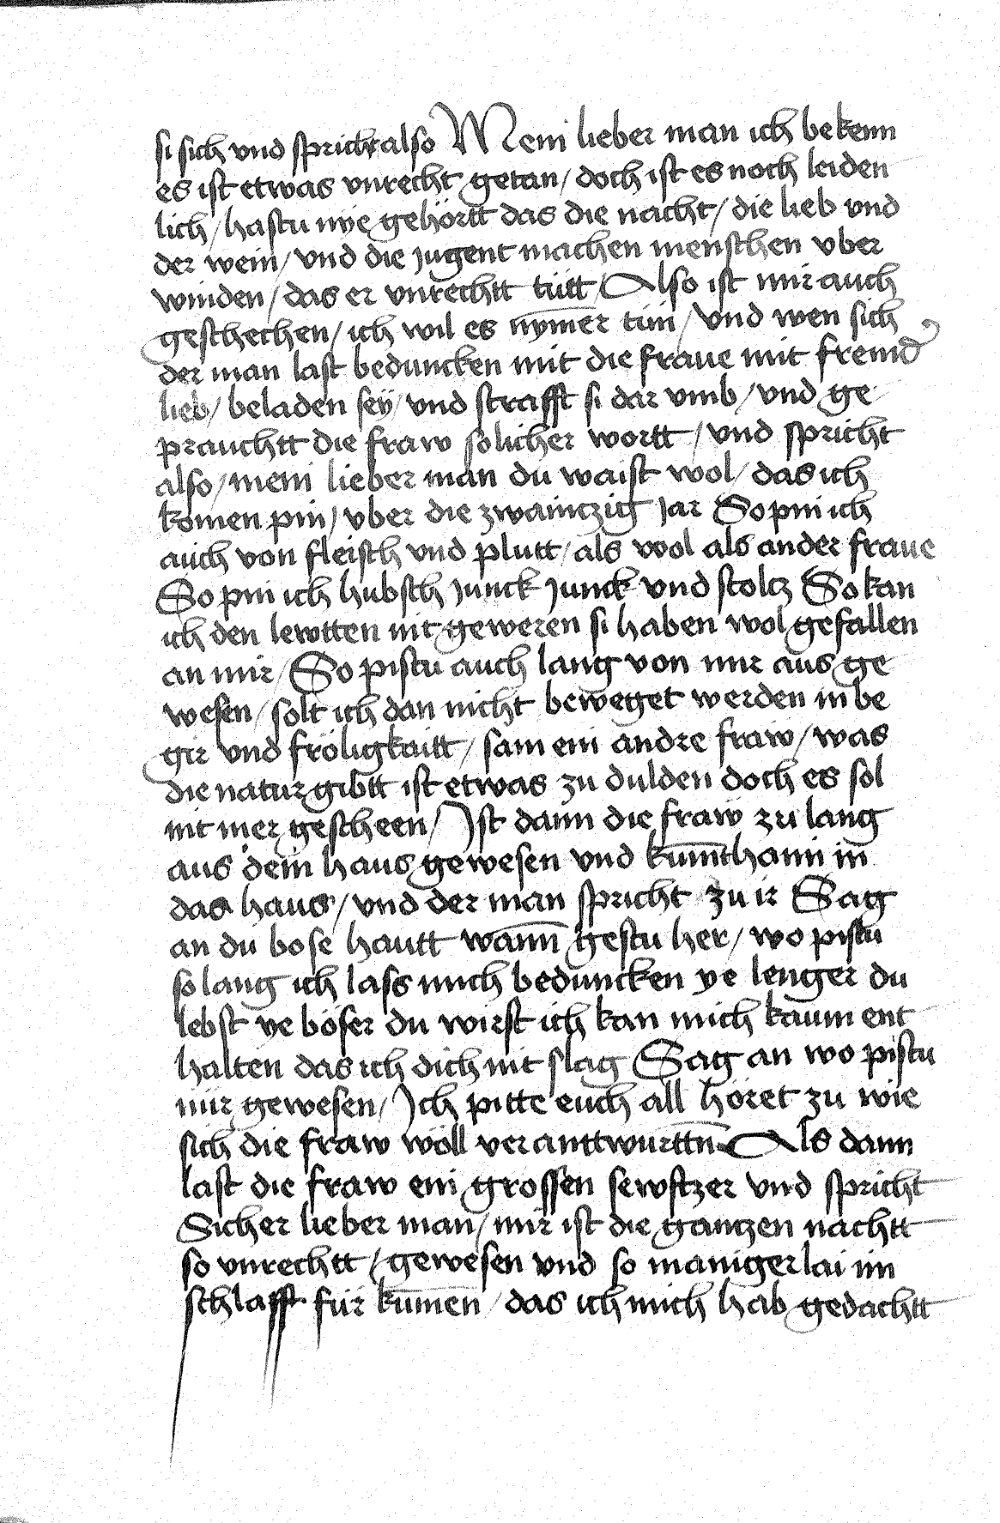 si sich vnd spricht also Mein lieber man ich bekenn
es ist etwas vnrecht getan / doch ist es noch leiden
lich / hastu nye gehörtt das die nacht / die lieb vnd
der wein / vnd die jugent machen menschen vber
winden / das er vnrechtt tütt / Also ist mir auch
geschechen / ich wil es nym̄er tün / vnd wen sich
der man last beduncken mit die fraue mit fremd
lieb / beladen seÿ / vnd strafft si dar vmb / vnd ge
prauchtt die fraw solicher wortt / vnd spricht
also / mein lieber man du waist wol / das ich
komen pin / vber die zwainczig jar So pin ich
auch von fleisch vnd plutt / als wol als ander fraue
So pin ich hubsch junck junck vnd stoltz So kan
ich den lewtten nit geweren si haben wol gefallen
an mir / So pistu auch lang von mir aus ge
wesen / solt ich dan nicht beweget werden in be
gir vnd fröligkaitt / sam ein andre fraw / was
die natur gibtt ist etwas zu dulden doch es sol
nit mer gescheen / Ist dann die fraw zu lang
aus dem haus gewesen vnd kum̄t hann in
das haus / vnd der man spricht zu ir Sag
an du bose hautt wann̄ gestu her / wo pistu
so lang ich lass mich beduncken ye lenger du
lebst ye böser du wirst ich kan mich kaum ent
halten das ich dich nit slag Sag an wo pistu
nür gewesen / Ich pitte euch all höret zu wie
sich die fraw wöll veranttwurttn̄ Als dann
last die fraw ein grossen sewftzer vnd spricht
Sicher lieber man / mir ist die gantzen nachtt
so vnrechtt / gewesen vnd so manigerlai im
schlafft für kum̄en / das ich mich hab gedachtt